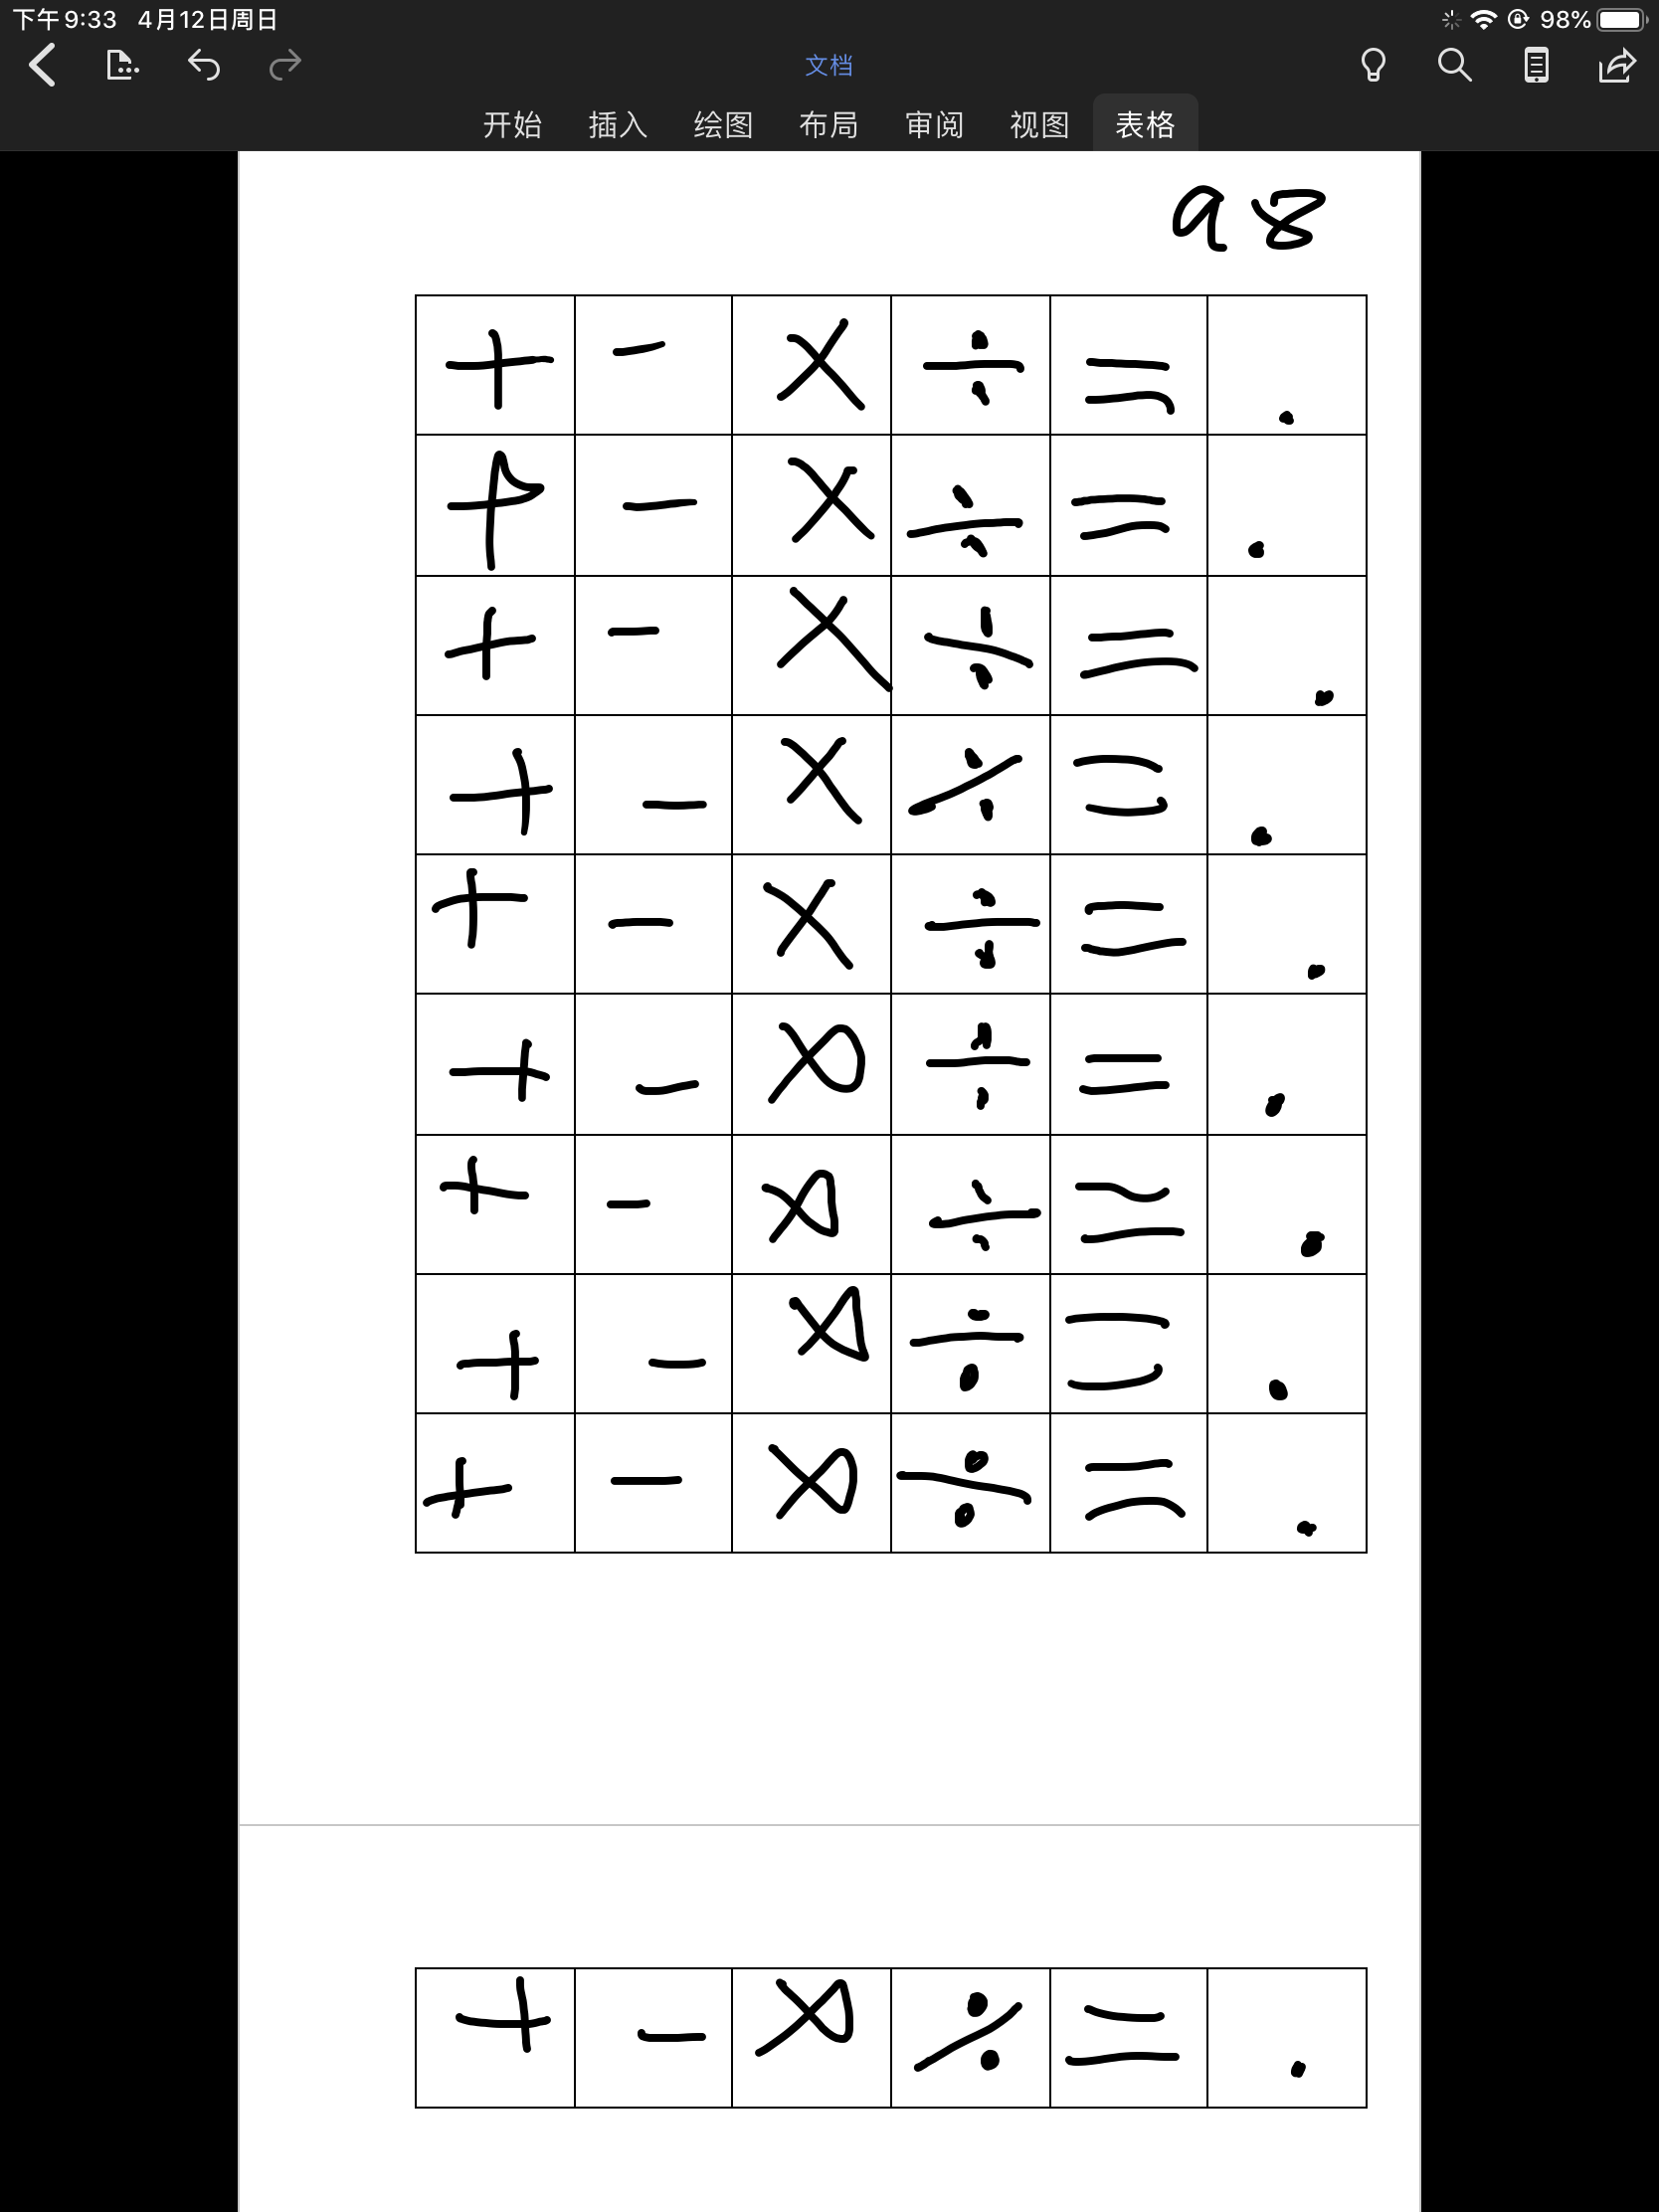 下午9:33 4月12日周日 98%
文档
开始 插入 绘图 布局 审阅 视图 表格
98
+ - × ÷ = .
+ - × ÷ = .
+ - × ÷ = .
+ - × ÷ = .
+ - × ÷ = .
+ - × ÷ = .
+ - × ÷ = .
+ - × ÷ = .
+ - × ÷ = .
+ - × ÷ = .